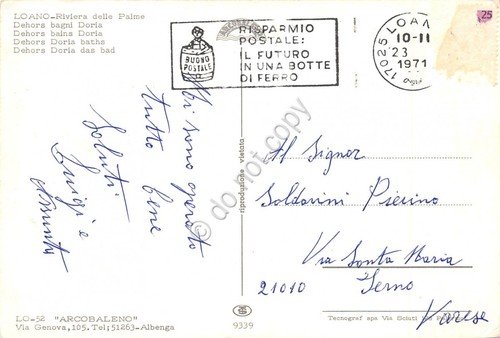 LOANO-Riviera delle Palme
Dehors bagni Doria
Dehors bains Doria
Dehors Doria baths
Dehors Doria das bad
ARCOBALENO
BUONO
POSTALE
RISPARMIO
POSTALE:
IL FUTURO
IN UNA BOTTE
DI FERRO
17025 LOANO
10-11
23
1971
25
sono operato
tutto bene
Saluti
Luigi e
Assunta
riproduzione vietata
do not copy
Al Signor
Soldarini Pierino
Via Santa Maria
21010 Ierno
Varese
LO-52 "ARCOBALENO"
Via Genova,105.Tel;51263-Albenga
9339
Tecnograf spa Via Sciuti